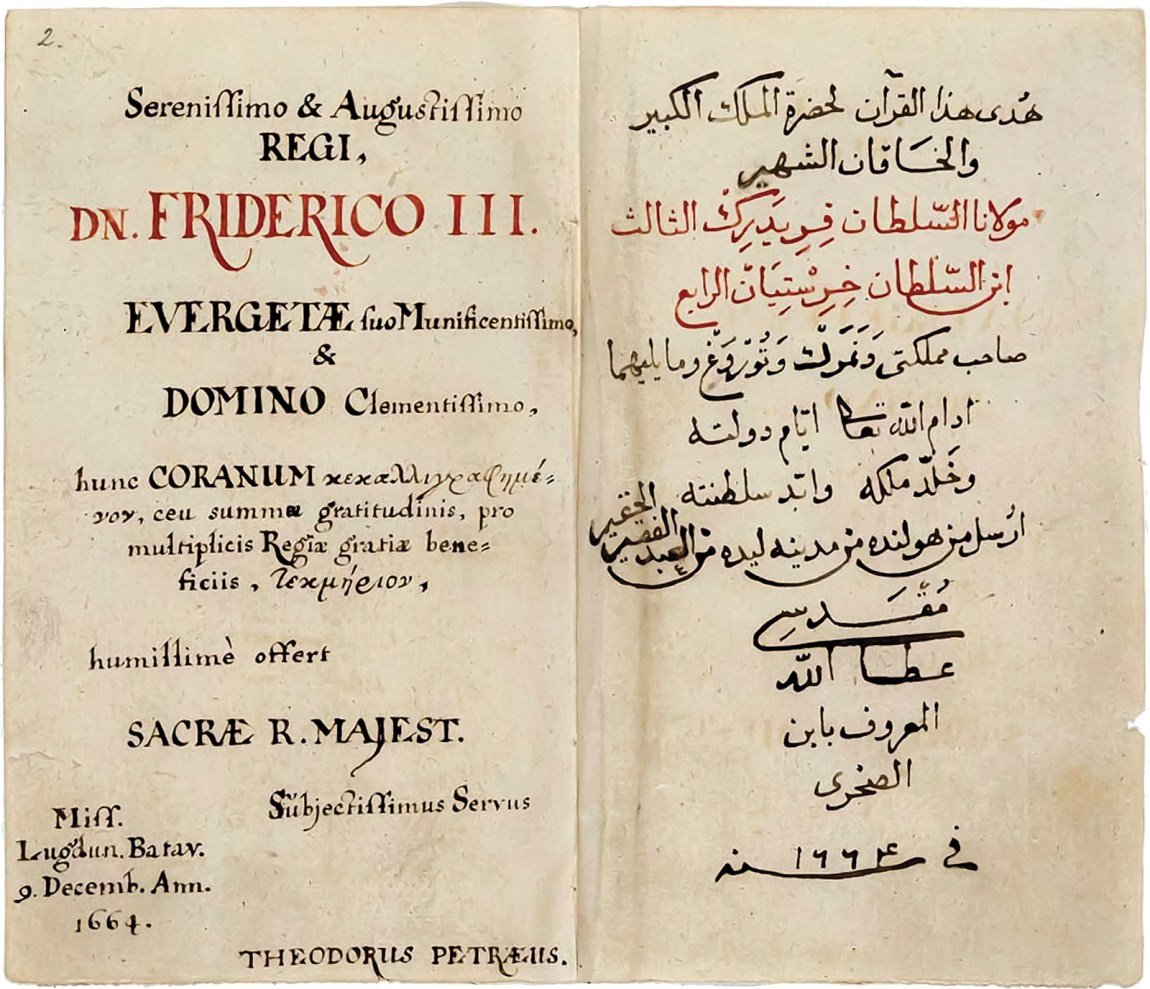 2.
Sereniſſimo & Auguſtiſſimo
REGI,
DN. FRIDERICO III.
EVERGETÆ ſuo Munificentiſſimo,
&
DOMINO Clementiſſimo,
hunc CORANUM κεκαλλιγραφημέ=
νον, ceu summæ gratitudinis, pro
multiplicis Regiæ gratiæ bene=
ficiis, τεκμήριον,
humillimè offert
SACRÆ R. MAJEST.
Sŭbjectiſſimus Servus
Miſſ.
Lugdun. Batav.
9. Decemb. Ann.
1664.
THEODORUS PETRÆUS.
هُدى هذا القرآن لحضرة الملك الكبير
والخاقان الشهير
مولانا السّلطان فِرِيدَرِكْ الثالث
ابن السّلطان خِرِسْتِيَانْ الرابع
صاحب مملكتى دَنَمَرْكْ وَنُوْرْوَغْ وما يليهما
ادام الله تعالى ايّام دولته
وخَلّد ملكه وابّد سلطنته
ارُسل من هولنده من مدينه ليده من العبد الفقير الحقير
مُقَدسِي
عطا الله
المعروف بابن
الصخرى
في سنه ١٦٦٤